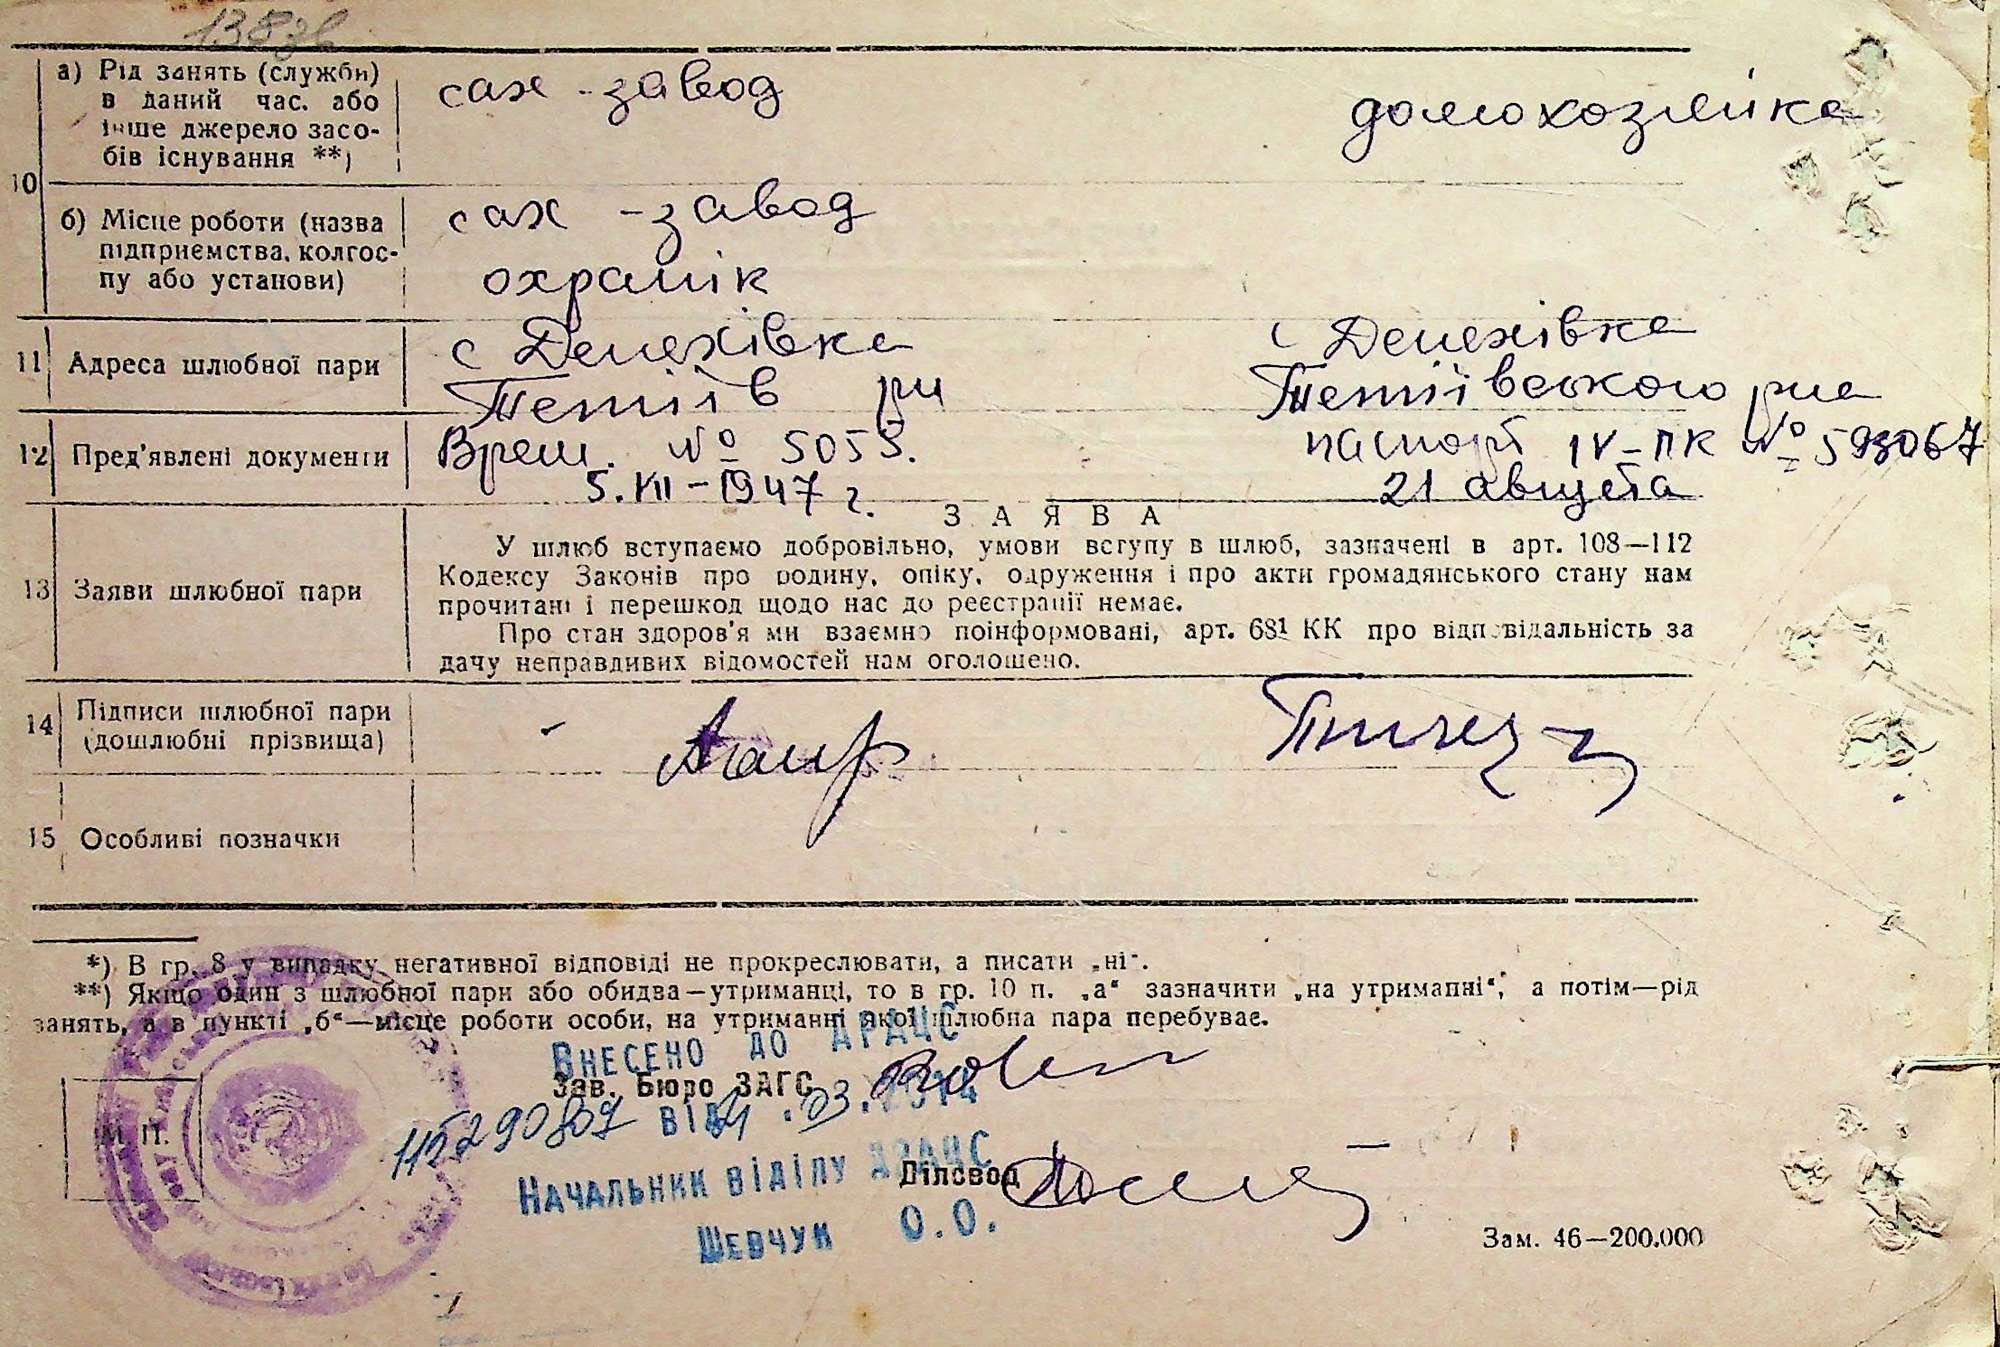 138зв
а) Рід занять (служби)
в даний час. або
інше джерело засо-
бів існування **)
сах-завод
домохозяйка
10
б) Місце роботи (назва
підприємства, колгос-
пу або установи)
сах-завод
охранік
11 Адреса шлюбної пари
с Денехівка
Тетіїв рн
с Денехівка
Тетіївського рна
12 Пред'явлені документи
Врем. № 5055.
5.VII-1947 г.
паспорт IV-ПК № 593067
21 августа
13 Заяви шлюбної пари
ЗАЯВА
У шлюб вступаємо добровільно, умови вступу в шлюб, зазначені в арт. 108—112
Кодексу Законів про родину, опіку, одруження і про акти громадянського стану нам
прочитані і перешкод щодо нас до реєстрації немає.
Про стан здоров'я ми взаємно поінформовані, арт. 68¹ КК про відповідальність за
дачу неправдивих відомостей нам оголошено.
14 Підписи шлюбної пари
(дошлюбні прізвища)
15 Особливі позначки
*) В гр. 8 у випадку негативної відповіді не прокреслювати, а писати „ні“.
**) Якщо один з шлюбної пари або обидва—утриманці, то в гр. 10 п. „а“ зазначити „на утриманні“, а потім—рід
занять, а в пункті „б“—місце роботи особи, на утриманні якої шлюбна пара перебуває.
Внесено до ДРАЦС
Зав. Бюро ЗАГС
від .03.2014
М. П.
Начальник відділу ДРАЦС
Діловод
Шевчук О.О.
Зам. 46—200.000